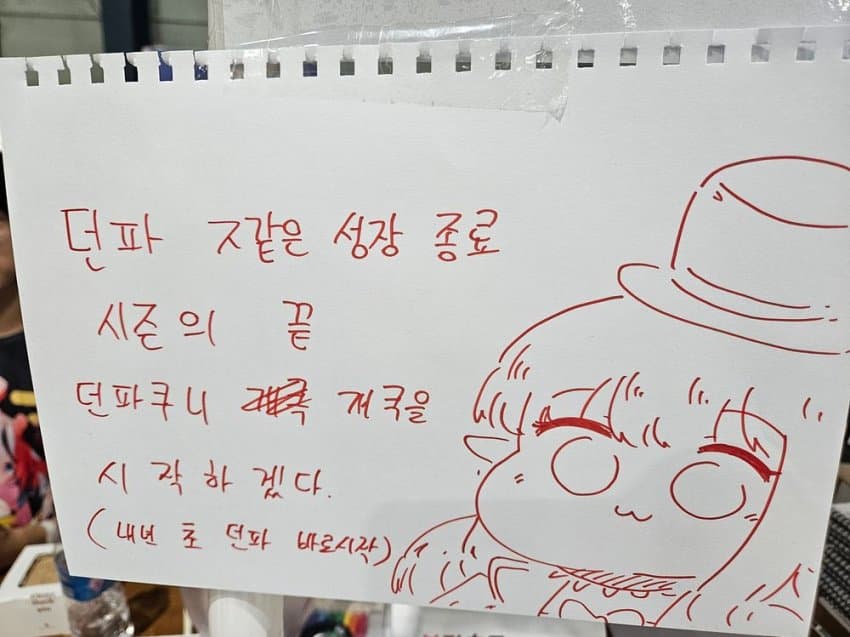 던파 ㅈ같은 성장 종료
시즌의 끝
던파쿠니 개국을
시작하겠다.
(내년 초 던파 바로시작)